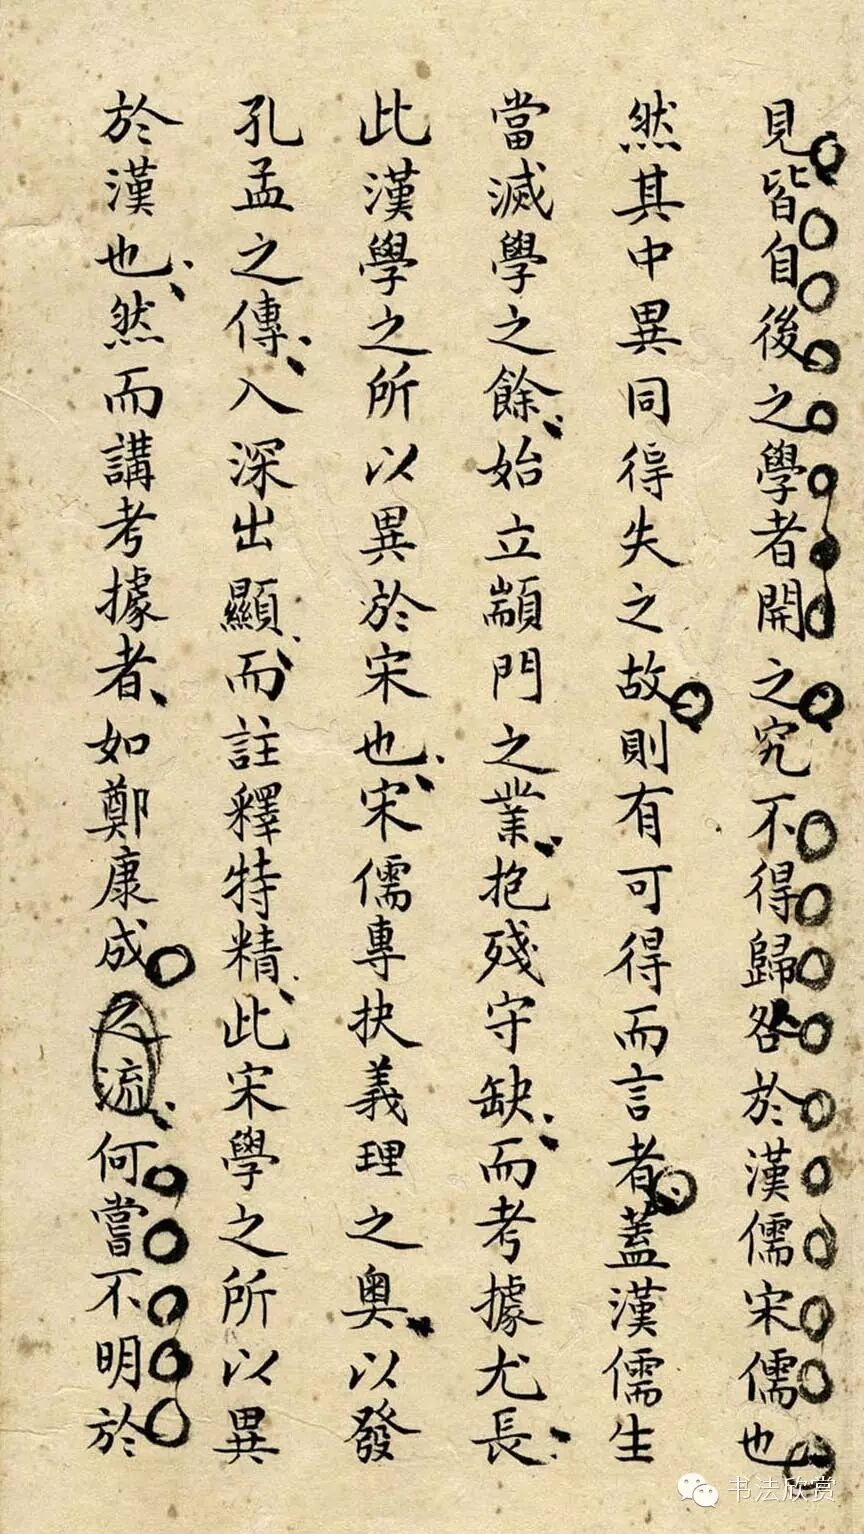 見皆自後之學者開之究不得歸咎於漢儒宋儒也
然其中異同得失之故則有可得而言者蓋漢儒生
當滅學之餘始立顓門之業抱殘守缺而考據尤長
此漢學之所以異於宋也宋儒專抉義理之奧以發
孔孟之傳入深出顯而註釋特精此宋學之所以異
於漢也然而講考據者如鄭康成之流何嘗不明於
书法欣赏